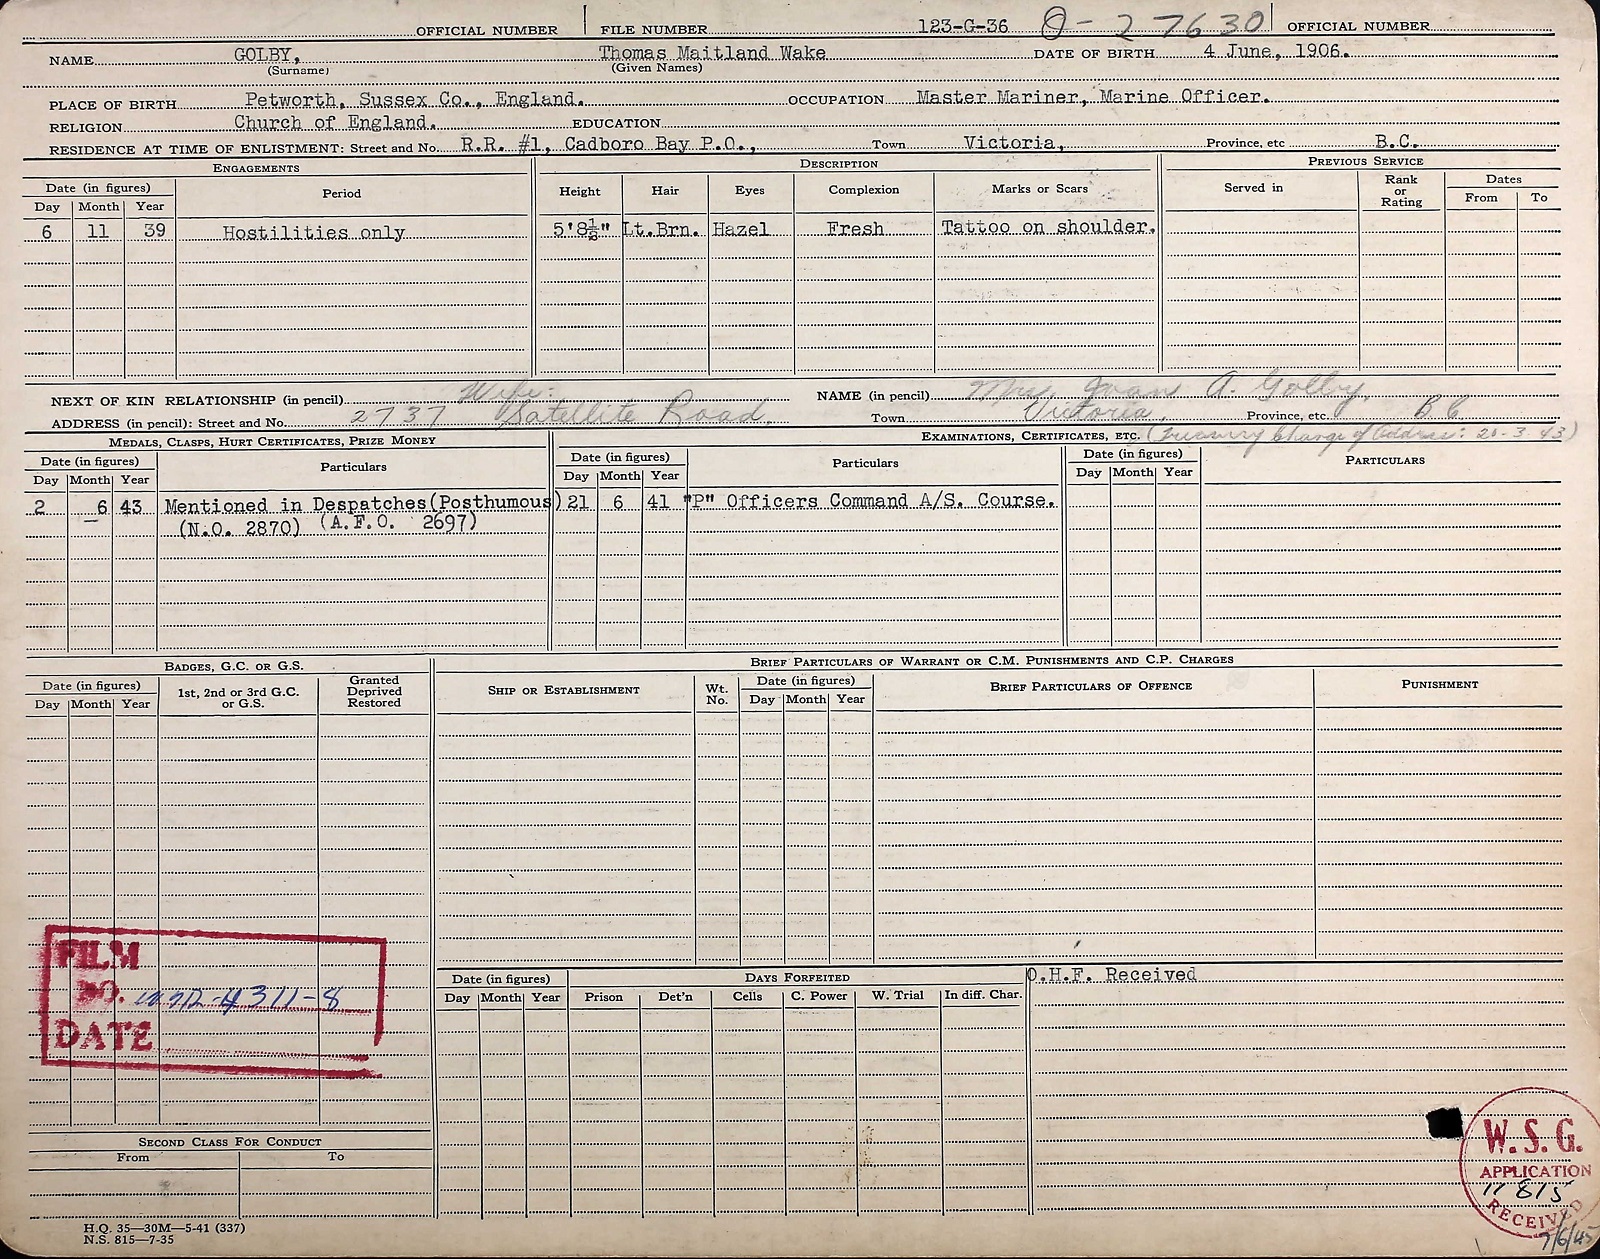 OFFICIAL NUMBER FILE NUMBER 123-G-36 O-27630 OFFICIAL NUMBER
NAME GOLBY, Thomas Maitland Wake DATE OF BIRTH 4 June, 1906.
(Surname) (Given Names)
PLACE OF BIRTH Petworth, Sussex Co., England. OCCUPATION Master Mariner, Marine Officer.
RELIGION Church of England. EDUCATION
RESIDENCE AT TIME OF ENLISTMENT: Street and No. R.R. #1, Cadboro Bay P.O., Town Victoria, Province, etc B.C.
ENGAGEMENTS DESCRIPTION PREVIOUS SERVICE
Date (in figures) Period Height Hair Eyes Complexion Marks or Scars Served in Rank or Rating Dates
Day Month Year From To
6 11 39 Hostilities only 5'8½" Lt.Brn. Hazel Fresh Tattoo on shoulder.
NEXT OF KIN RELATIONSHIP (in pencil) Wife: NAME (in pencil) Mrs. Joan A. Golby,
ADDRESS (in pencil): Street and No. 2737 Satellite Road, Town Victoria, Province, etc. BC
MEDALS, CLASPS, HURT CERTIFICATES, PRIZE MONEY EXAMINATIONS, CERTIFICATES, ETC. (Treasury Change of Address: 20-3-43)
Date (in figures) Particulars Date (in figures) Particulars Date (in figures) PARTICULARS
Day Month Year Day Month Year Day Month Year
2 6 43 Mentioned in Despatches (Posthumous) 21 6 41 "P" Officers Command A/S. Course.
(N.O. 2870) (A.F.O. 2697)
BADGES, G.C. OR G.S. BRIEF PARTICULARS OF WARRANT OR C.M. PUNISHMENTS AND C.P. CHARGES
Date (in figures) 1st, 2nd or 3rd G.C. or G.S. Granted Deprived Restored SHIP OR ESTABLISHMENT Wt. No. Date (in figures) BRIEF PARTICULARS OF OFFENCE PUNISHMENT
Day Month Year Day Month Year
FILM
NO. 4311-8
DATE
Date (in figures) DAYS FORFEITED O.H.F. Received
Day Month Year Prison Det'n Cells C. Power W. Trial In diff. Char.
SECOND CLASS FOR CONDUCT
From To
W.S.G.
APPLICATION
11815
RECEIVED
7/6/45
H.Q. 35—30M—5-41 (337)
N.S. 815—7-35